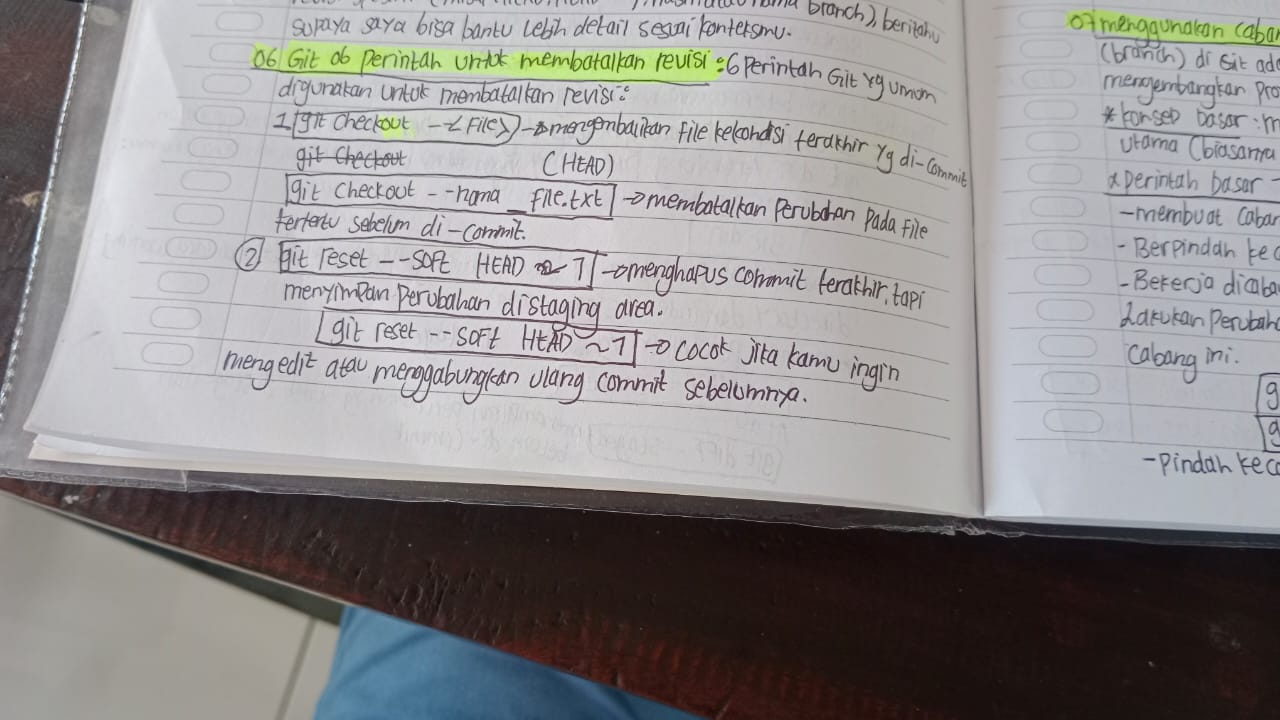 branch), beritahu
supaya saya bisa bantu lebih detail sesuai konteksmu.
06 Git 06 perintah untuk membatalkan revisi : 6 Perintah Git yg umum
digunakan untuk membatalkan revisi :
1. git checkout -- < File > → mengembalikan File kekondisi terakhir yg di-commit
git checkout (HEAD)
git checkout -- nama file.txt → membatalkan Perubahan Pada File
tertentu sebelum di-commit.
② git reset --soft HEAD ~ 1 → menghapus commit terakhir, tapi
menyimpan perubahan distaging area.
git reset --soft HEAD ~ 1 → cocok jika kamu ingin
mengedit atau menggabungkan ulang commit sebelumnya.
07 menggunakan caban
(branch) di Git ada
mengembangkan Pro
* konsep basar : m
utama (biasanya
* perintah basar -
- membuat cabar
- Berpindah ke c
- Bekerja dicaba
Lakukan Perubaha
cabang ini.
g
g
- Pindah ke ca